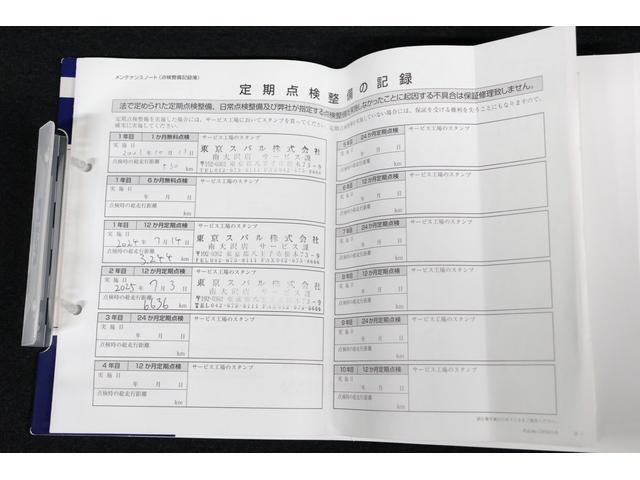 メンテナンスノート(点検整備記録簿)
定期点検整備の記録
法で定められた定期点検整備、日常点検整備及び弊社が指定する点検整備を実施しなかったことに起因する不具合は保証修理致しません。
定期点検整備を実施した場合には、サービス工場においてスタンプを貰ってください。
確実に実施してください。
1年目 1か月無料点検
サービス工場のスタンプ
実施日
2023年10月13日
点検時の総走行距離
830 km
東京スバル株式会社
南大沢店 サービス課
1年目 6か月無料点検
サービス工場のスタンプ
実施日
年 月 日
点検時の総走行距離
km
1年目 12か月定期点検
サービス工場のスタンプ
実施日
2024年7月14日
点検時の総走行距離
3,244 km
東京スバル株式会社
南大沢店 サービス課
2年目 12か月定期点検
サービス工場のスタンプ
実施日
2025年7月3日
点検時の総走行距離
6636 km
東京スバル株式会社
南大沢店 サービス課
3年目 24か月定期点検
サービス工場のスタンプ
実施日
年 月 日
点検時の総走行距離
km
4年目 12か月定期点検
サービス工場のスタンプ
実施日
年 月 日
点検時の総走行距離
km
5年目 24か月定期点検
サービス工場のスタンプ
実施日
年 月 日
点検時の総走行距離
km
6年目 12か月定期点検
サービス工場のスタンプ
実施日
年 月 日
点検時の総走行距離
km
7年目 24か月定期点検
サービス工場のスタンプ
実施日
年 月 日
点検時の総走行距離
km
8年目 12か月定期点検
サービス工場のスタンプ
実施日
年 月 日
点検時の総走行距離
km
9年目 24か月定期点検
サービス工場のスタンプ
実施日
年 月 日
点検時の総走行距離
km
10年目 12か月定期点検
サービス工場のスタンプ
実施日
年 月 日
点検時の総走行距離
km